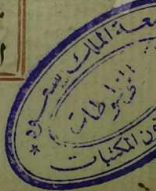 جامعة الملك سعود
المخطوطات
شئون المكتبات